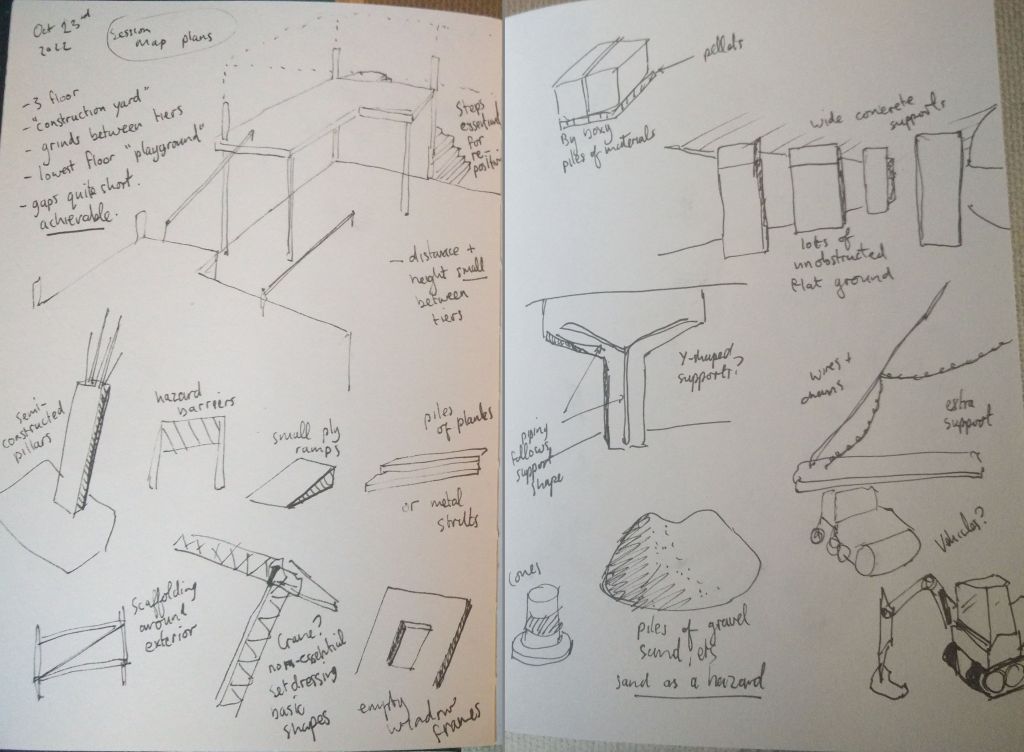 Oct 23rd
2022
Session
Map plans
- 3 floor
- "construction yard"
- grinds between tiers
- lowest floor "playground"
- gaps quite short.
achievable.
Steps
essential
for
re-
- distance +
height small
between
tiers
semi-
constructed
pillars
hazard
barriers
small ply
ramps
piles
of planks
or metal
struts
Scaffolding
around
exterior
Crane?
non-essential
set dressing
basic
shapes
empty
window
frames
pellets
By boxy
piles of materials
wide concrete
supports
lots of
unobstructed
flat ground
Y-shaped
supports?
piping
follows
support
shape
wires +
chains
extra
support
Vehicles?
Cones
piles of gravel
sand, etc
sand as a hazard